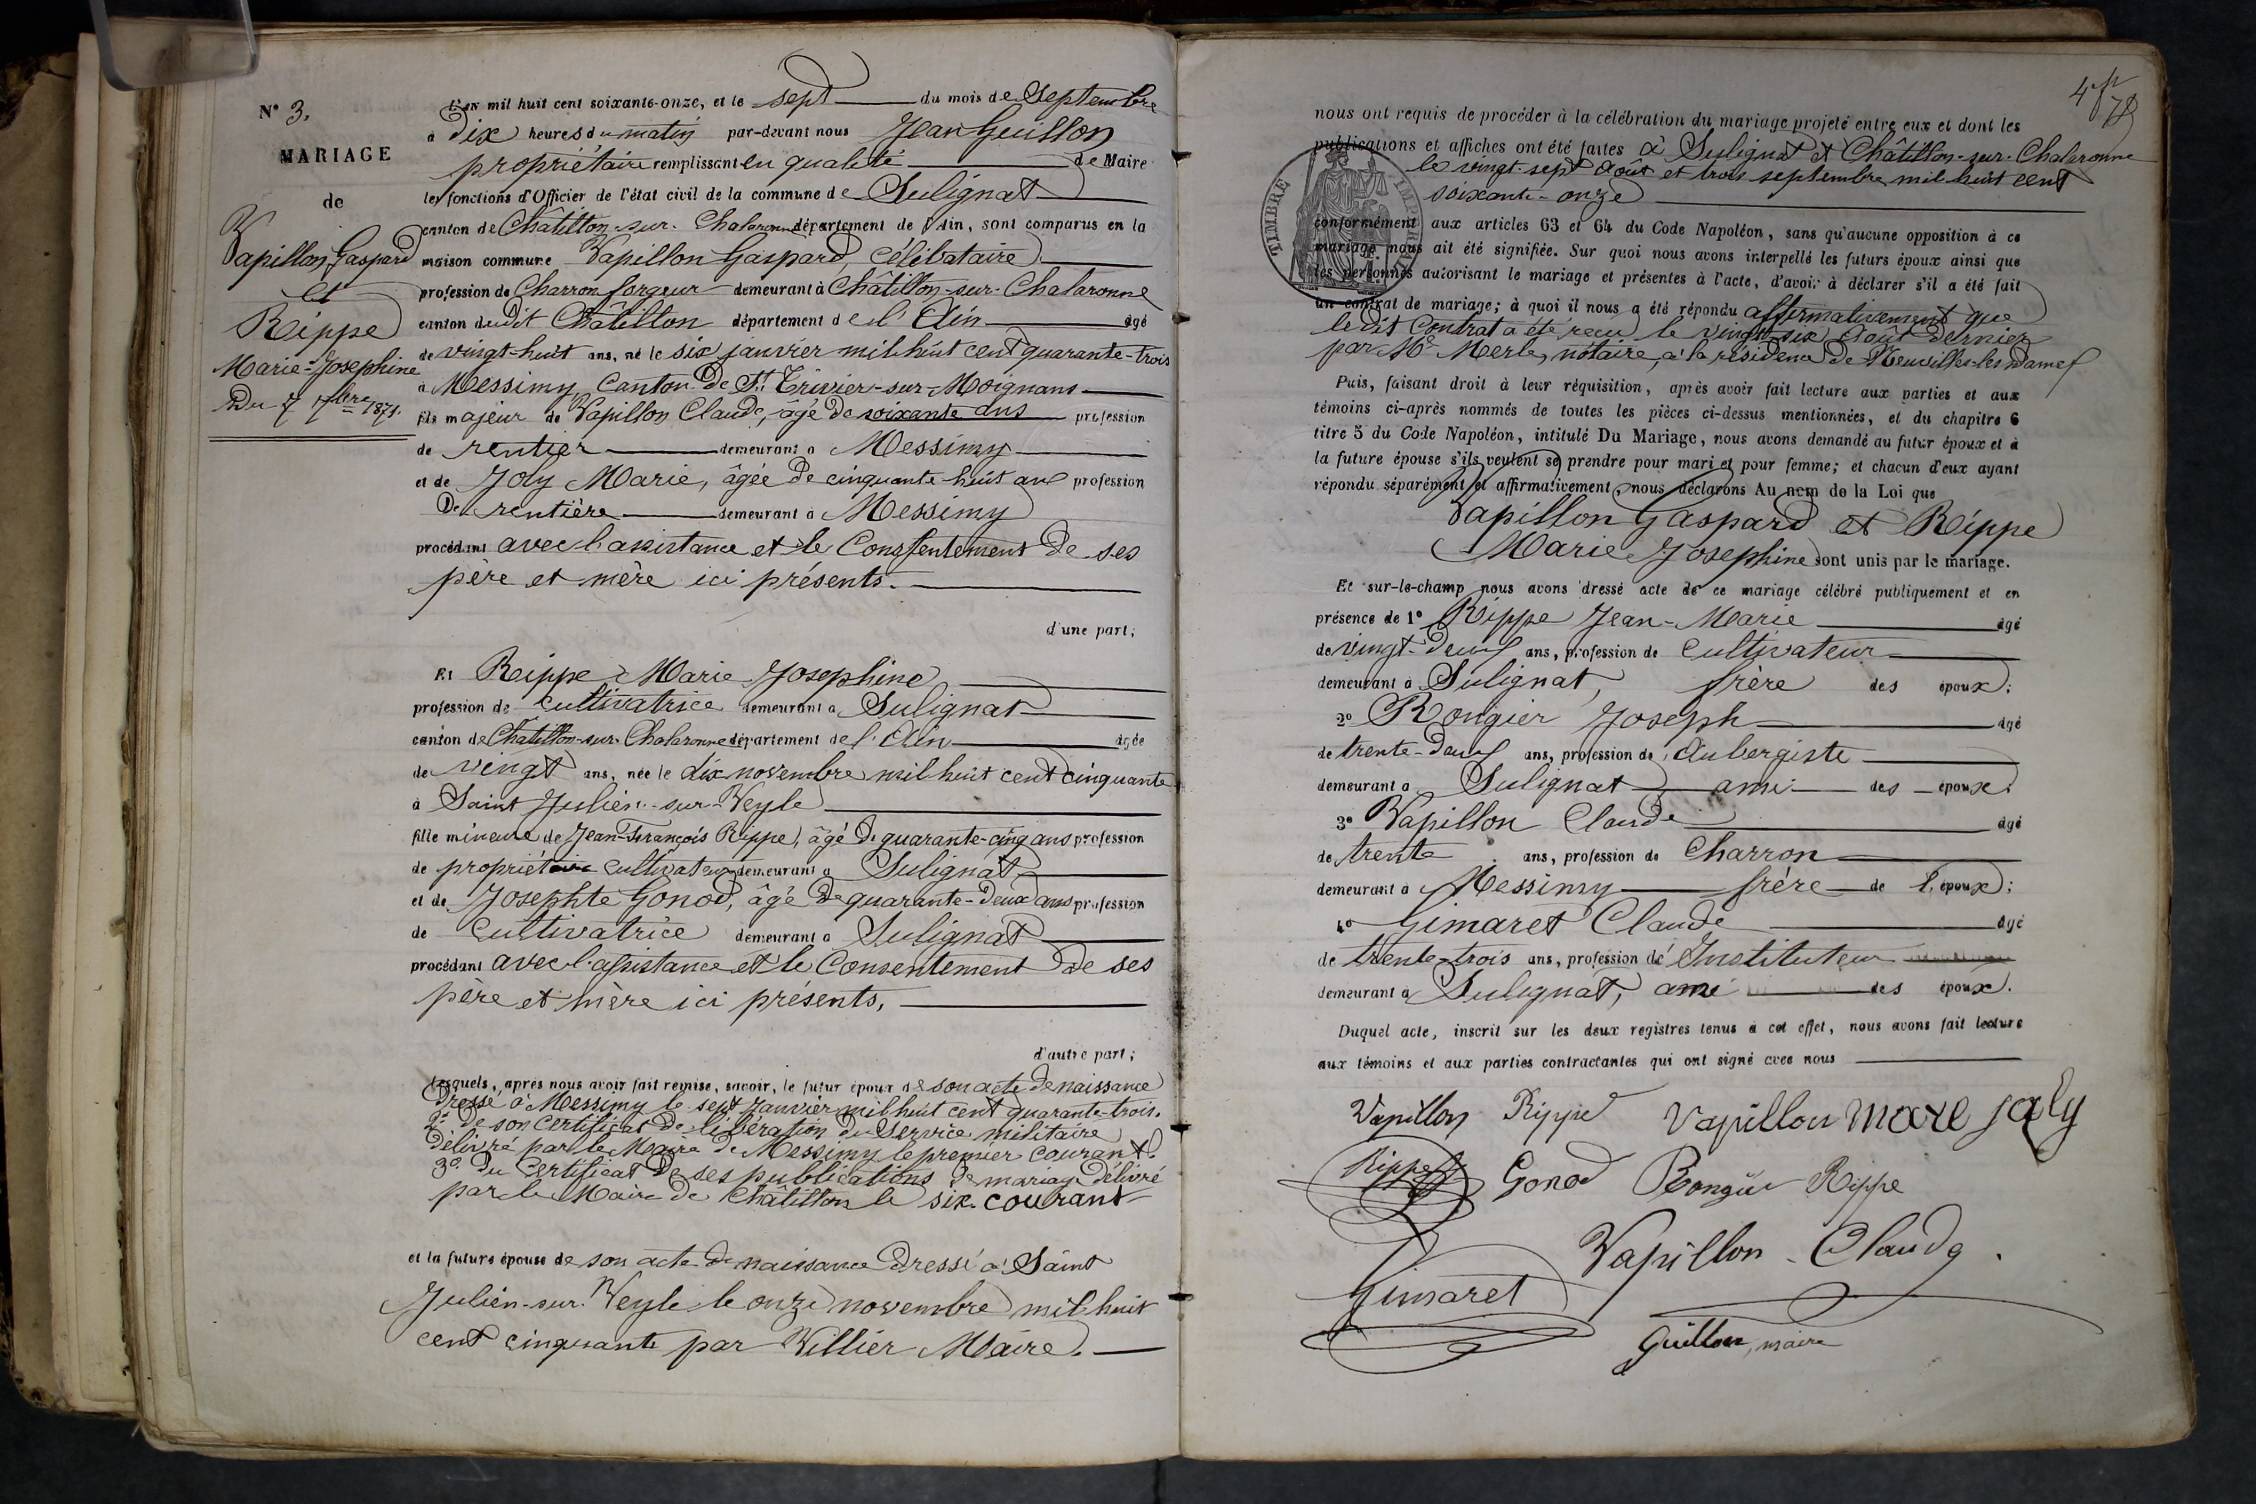 N° 3.
MARIAGE
de
Vapillon Gaspard
et
Rippe
Marie-Josephine
Du 7 7bre 1871.
L'an mil huit cent soixante-onze, et le sept du mois de Septembre
à dix heures du matin par-devant nous Jean Guillon
propriétaire remplissant en qualité de Maire
les fonctions d'Officier de l'état civil de la commune de Sulignat
canton de Châtillon-sur-Chalaronne département de l'Ain, sont comparus en la
maison commune Vapillon Gaspard, célibataire
profession de Charron forgeur demeurant à Châtillon-sur-Chalaronne
canton dudit Châtillon département de l'Ain âgé
de vingt-huit ans, né le six janvier mil huit cent quarante-trois
à Messimy Canton de St Trivier-sur-Moignans
fils majeur de Vapillon Claude, âgé de soixante ans profession
de rentier demeurant à Messimy
et de Joly Marie, âgée de cinquante-huit ans profession
De rentière demeurant à Messimy
procédant avec l'assistance et le Consentement de ses
père et mère ici présents.
d'une part;
Et Rippe Marie-Josephine
profession de cultivatrice demeurant à Sulignat
canton de Châtillon-sur-Chalaronne département de l'Ain âgée
de vingt ans, née le dix novembre mil huit cent cinquante
à Saint Julien-sur-Veyle
fille mineure de Jean-François Rippe, âgé de quarante-cinq ans profession
de propriétaire cultivateur demeurant à Sulignat
et de Josephte Gonod, âgé de quarante-deux ans profession
de Cultivatrice demeurant à Sulignat
procédant avec l'assistance et le Consentement de ses
père et mère ici présents,
d'autre part;
Lesquels, après nous avoir fait remise, savoir, le futur époux de son acte de naissance
dressé à Messimy le sept janvier mil huit cent quarante-trois.
2° de son certificat de libération du Service militaire
délivré par le Maire de Messimy le premier courant.
3° du Certificat de ses publications de mariage délivré
par le Maire de Châtillon le six courant
et la future épouse de son acte de naissance dressé à Saint
Julien-sur-Veyle le onze novembre mil huit
cent cinquante par Villier Maire.
nous ont requis de procéder à la célébration du mariage projeté entre eux et dont les
publications et affiches ont été faites à Sulignat et Châtillon-sur-Chalaronne
le vingt-sept août et trois septembre mil huit cent
soixante-onze
TIMBRE IMPÉRIAL
conformément aux articles 63 et 64 du Code Napoléon, sans qu'aucune opposition à ce
mariage nous ait été signifiée. Sur quoi nous avons interpellé les futurs époux ainsi que
les personnes autorisant le mariage et présentes à l'acte, d'avoir à déclarer s'il a été fait
un contrat de mariage; à quoi il nous a été répondu affirmativement que
le dit Contrat a été reçu le vingt-six août dernier
par Me Merle, notaire, à la résidence de Neuville-les-Dames
Puis, faisant droit à leur réquisition, après avoir fait lecture aux parties et aux
témoins ci-après nommés de toutes les pièces ci-dessus mentionnées, et du chapitre 6
titre 5 du Code Napoléon, intitulé Du Mariage, nous avons demandé au futur époux et à
la future épouse s'ils veulent se prendre pour mari et pour femme; et chacun d'eux ayant
répondu séparément et affirmativement, nous déclarons Au nom de la Loi que
Vapillon Gaspard et Rippe
Marie Josephine sont unis par le mariage.
Et sur-le-champ nous avons dressé acte de ce mariage célébré publiquement et en
présence de 1° Rippe Jean-Marie âgé
de vingt-deux ans, profession de cultivateur
demeurant à Sulignat, frère des époux;
2° Rongier Joseph âgé
de trente-deux ans, profession de Aubergiste
demeurant à Sulignat ami des époux.
3° Vapillon Claude âgé
de trente ans, profession de Charron
demeurant à Messimy frère de l'époux;
4° Gimaret Claude âgé
de trente-trois ans, profession de Instituteur
demeurant à Sulignat, ami des époux.
Duquel acte, inscrit sur les deux registres tenus à cet effet, nous avons fait lecture
aux témoins et aux parties contractantes qui ont signé avec nous
Vapillon Rippe Vapillon Marie Joly
Rippe Gonod Rongier Rippe
Vapillon Claude
Gimaret
Guillon, maire